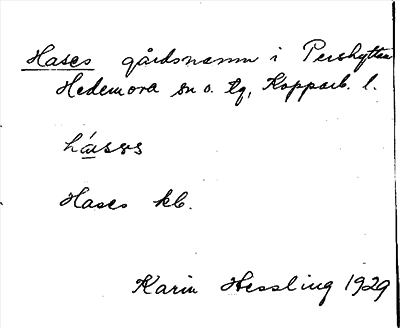 Hases gårdsnamn i Pershyttan
Hedemora sn o. tg, Kopparb. l.
há̱sɐs
Hases kb.
Karin Hessling 1929